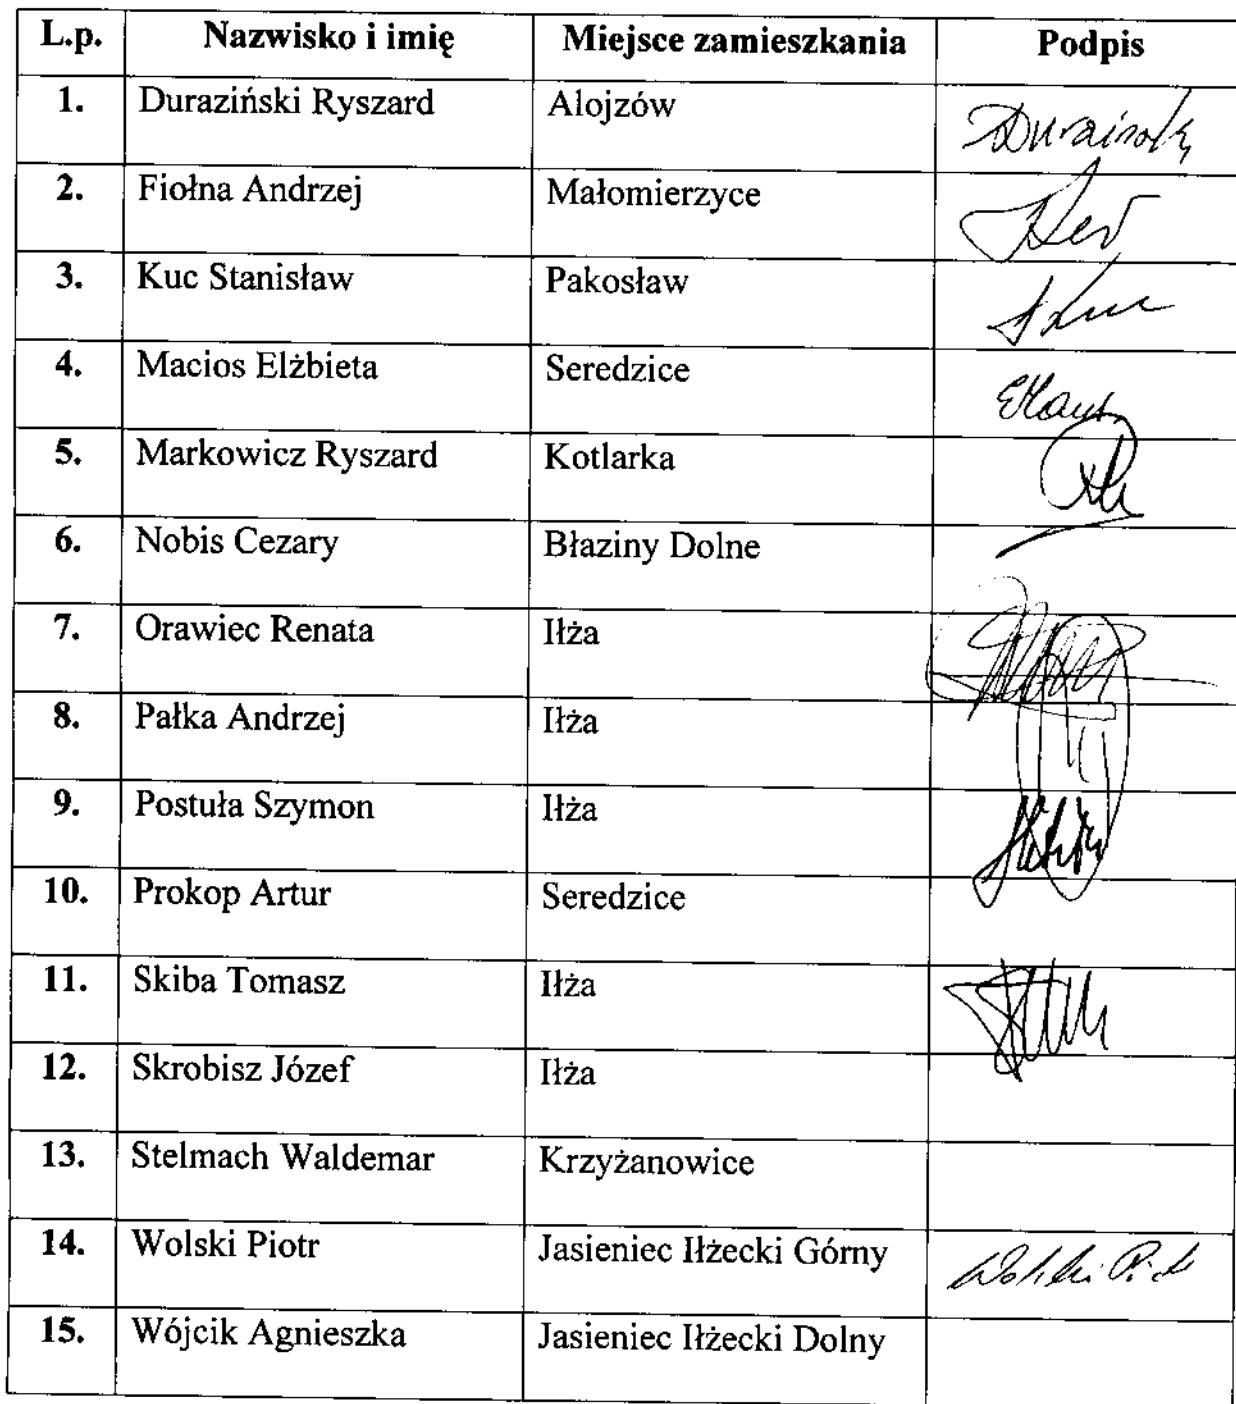 L.p. Nazwisko i imię Miejsce zamieszkania Podpis
1. Duraziński Ryszard Alojzów
2. Fiołna Andrzej Małomierzyce
3. Kuc Stanisław Pakosław
4. Macios Elżbieta Seredzice
5. Markowicz Ryszard Kotlarka
6. Nobis Cezary Błaziny Dolne
7. Orawiec Renata Iłża
8. Pałka Andrzej Iłża
9. Postuła Szymon Iłża
10. Prokop Artur Seredzice
11. Skiba Tomasz Iłża
12. Skrobisz Józef Iłża
13. Stelmach Waldemar Krzyżanowice
14. Wolski Piotr Jasieniec Iłżecki Górny
15. Wójcik Agnieszka Jasieniec Iłżecki Dolny